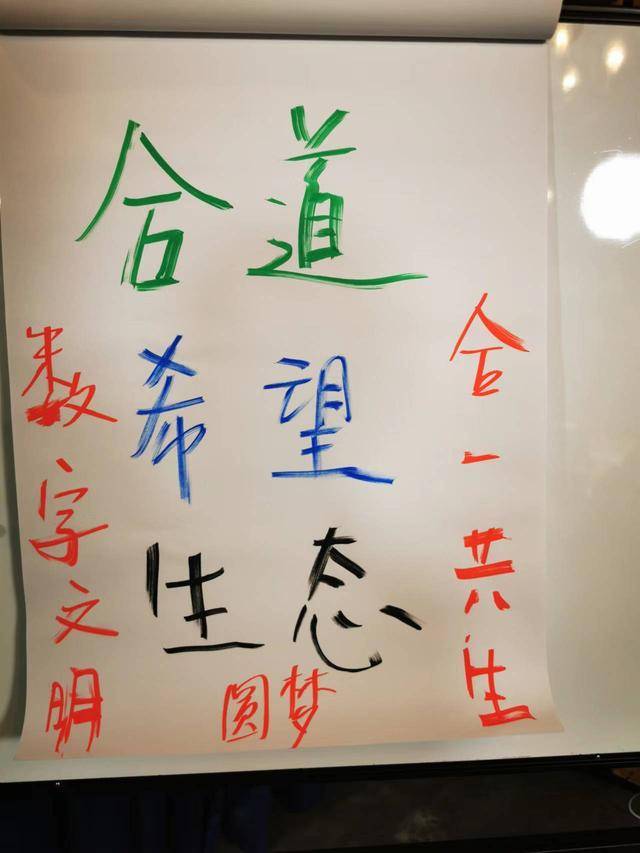 合道
希望
生态
合一共生
数字文明
圆梦